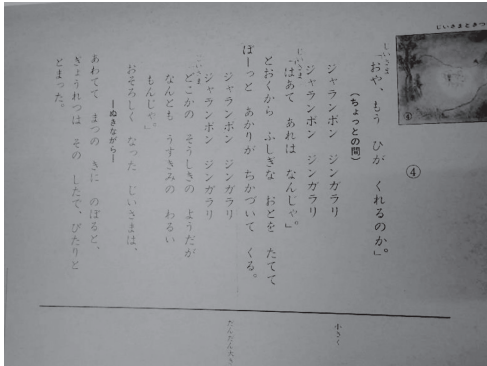 じいさまときつ
④
じいさま
「おや、もう ひが くれるのか。
(ちょっとの間)
ジャランポン ジンガラリ
ジャランポン ジンガラリ
じいさま
「はあて あれは なんじゃ。」
とおくから ふしぎな おとを たてて
ぼーっと あかりが ちかづいて くる。
ジャランポン ジンガラリ
ジャランポン ジンガラリ
じいさま
どこかの そうしきの ようだが
なんとも うすきみの わるい
もんじゃ。」
おそろしく なった じいさまは、
―ぬきながら―
あわてて まつの きに のぼると、
ぎょうれつは その したで、ぴたりと
とまった。
小さく
だんだん大き